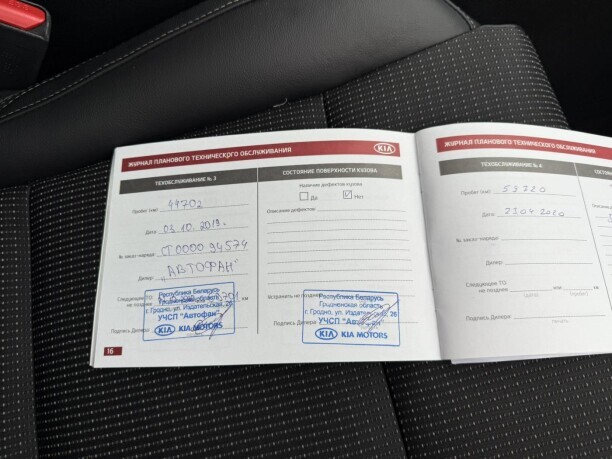 ЖУРНАЛ ПЛАНОВОГО ТЕХНИЧЕСКОГО ОБСЛУЖИВАНИЯ
KIA
ТЕХОБСЛУЖИВАНИЕ № 3
Пробег (км): 44702
Дата: 03.10.2019г.
№ заказ-наряда: СТ0000 94574
Дилер: „АВТОФАН"
Следующее ТО:
не позднее
км
Подпись Дилера:
Республика Беларусь
Гродненская область
г. Гродно, ул. Издательская, 28
УЧСП "Автофан"
KIA KIA MOTORS
16
СОСТОЯНИЕ ПОВЕРХНОСТИ КУЗОВА
Наличие дефектов кузова
Да
Нет
Описание дефектов:
Устранить не позднее
Подпись Дилера:
Республика Беларусь
Гродненская область
г. Гродно, ул. Издательская, 28
УЧСП "Автофан"
KIA KIA MOTORS
ЖУРНАЛ ПЛАНОВОГО ТЕХНИЧЕСКОГО ОБСЛУЖИВАНИЯ
ТЕХОБСЛУЖИВАНИЕ № 4
Пробег (км): 59720
Дата: 23.04.2020
№ заказ-наряда:
Дилер:
Следующее ТО:
не позднее
или
Подпись Дилера: